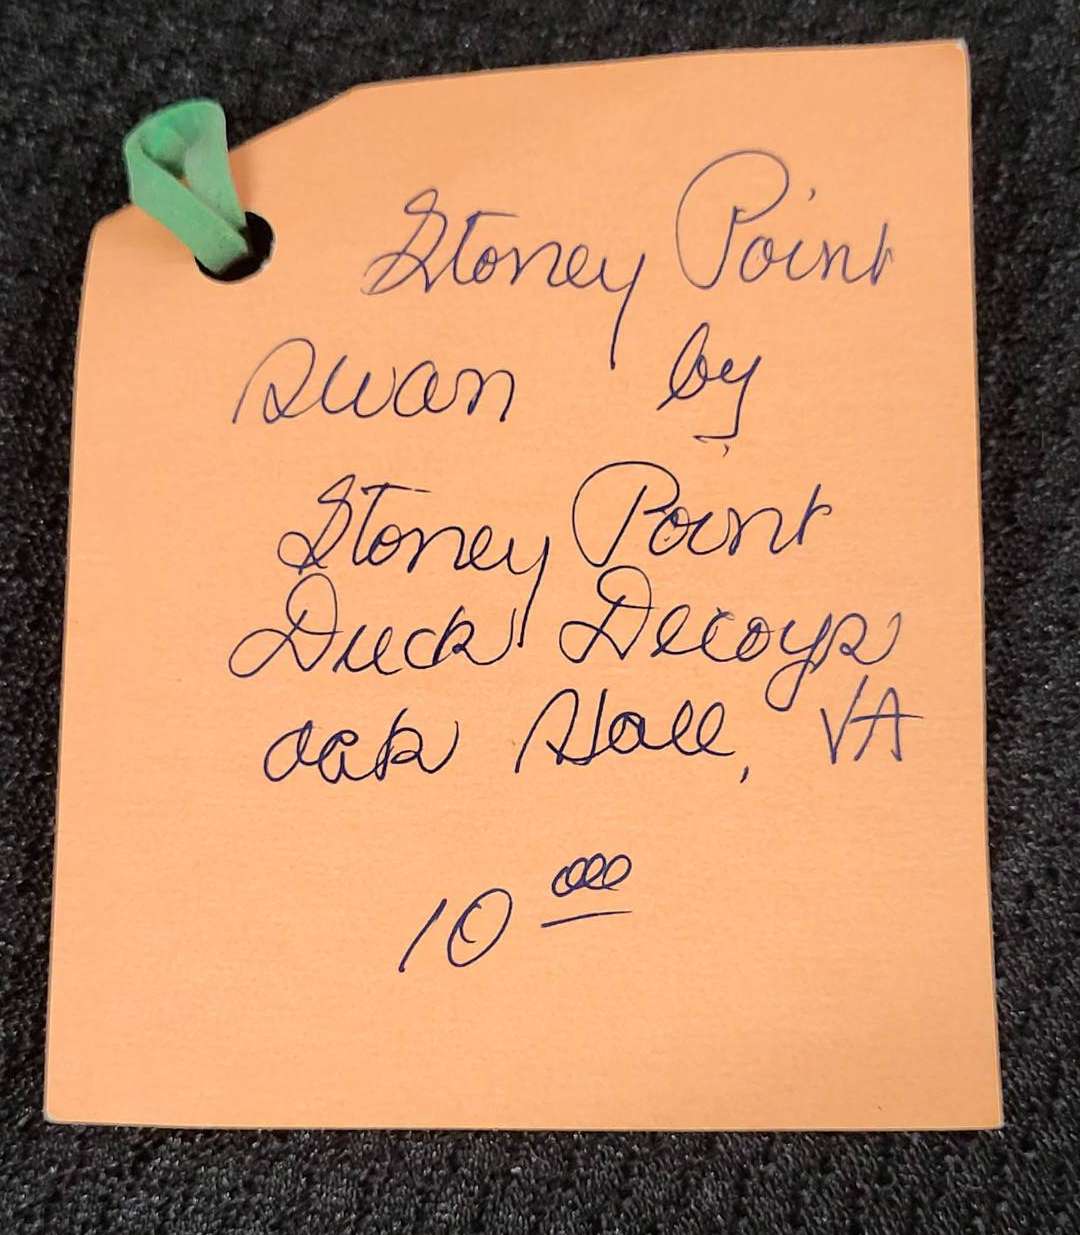 Stoney Point
Swan by
Stoney Point
Duck Decoys
oak Hall, VA
10 00